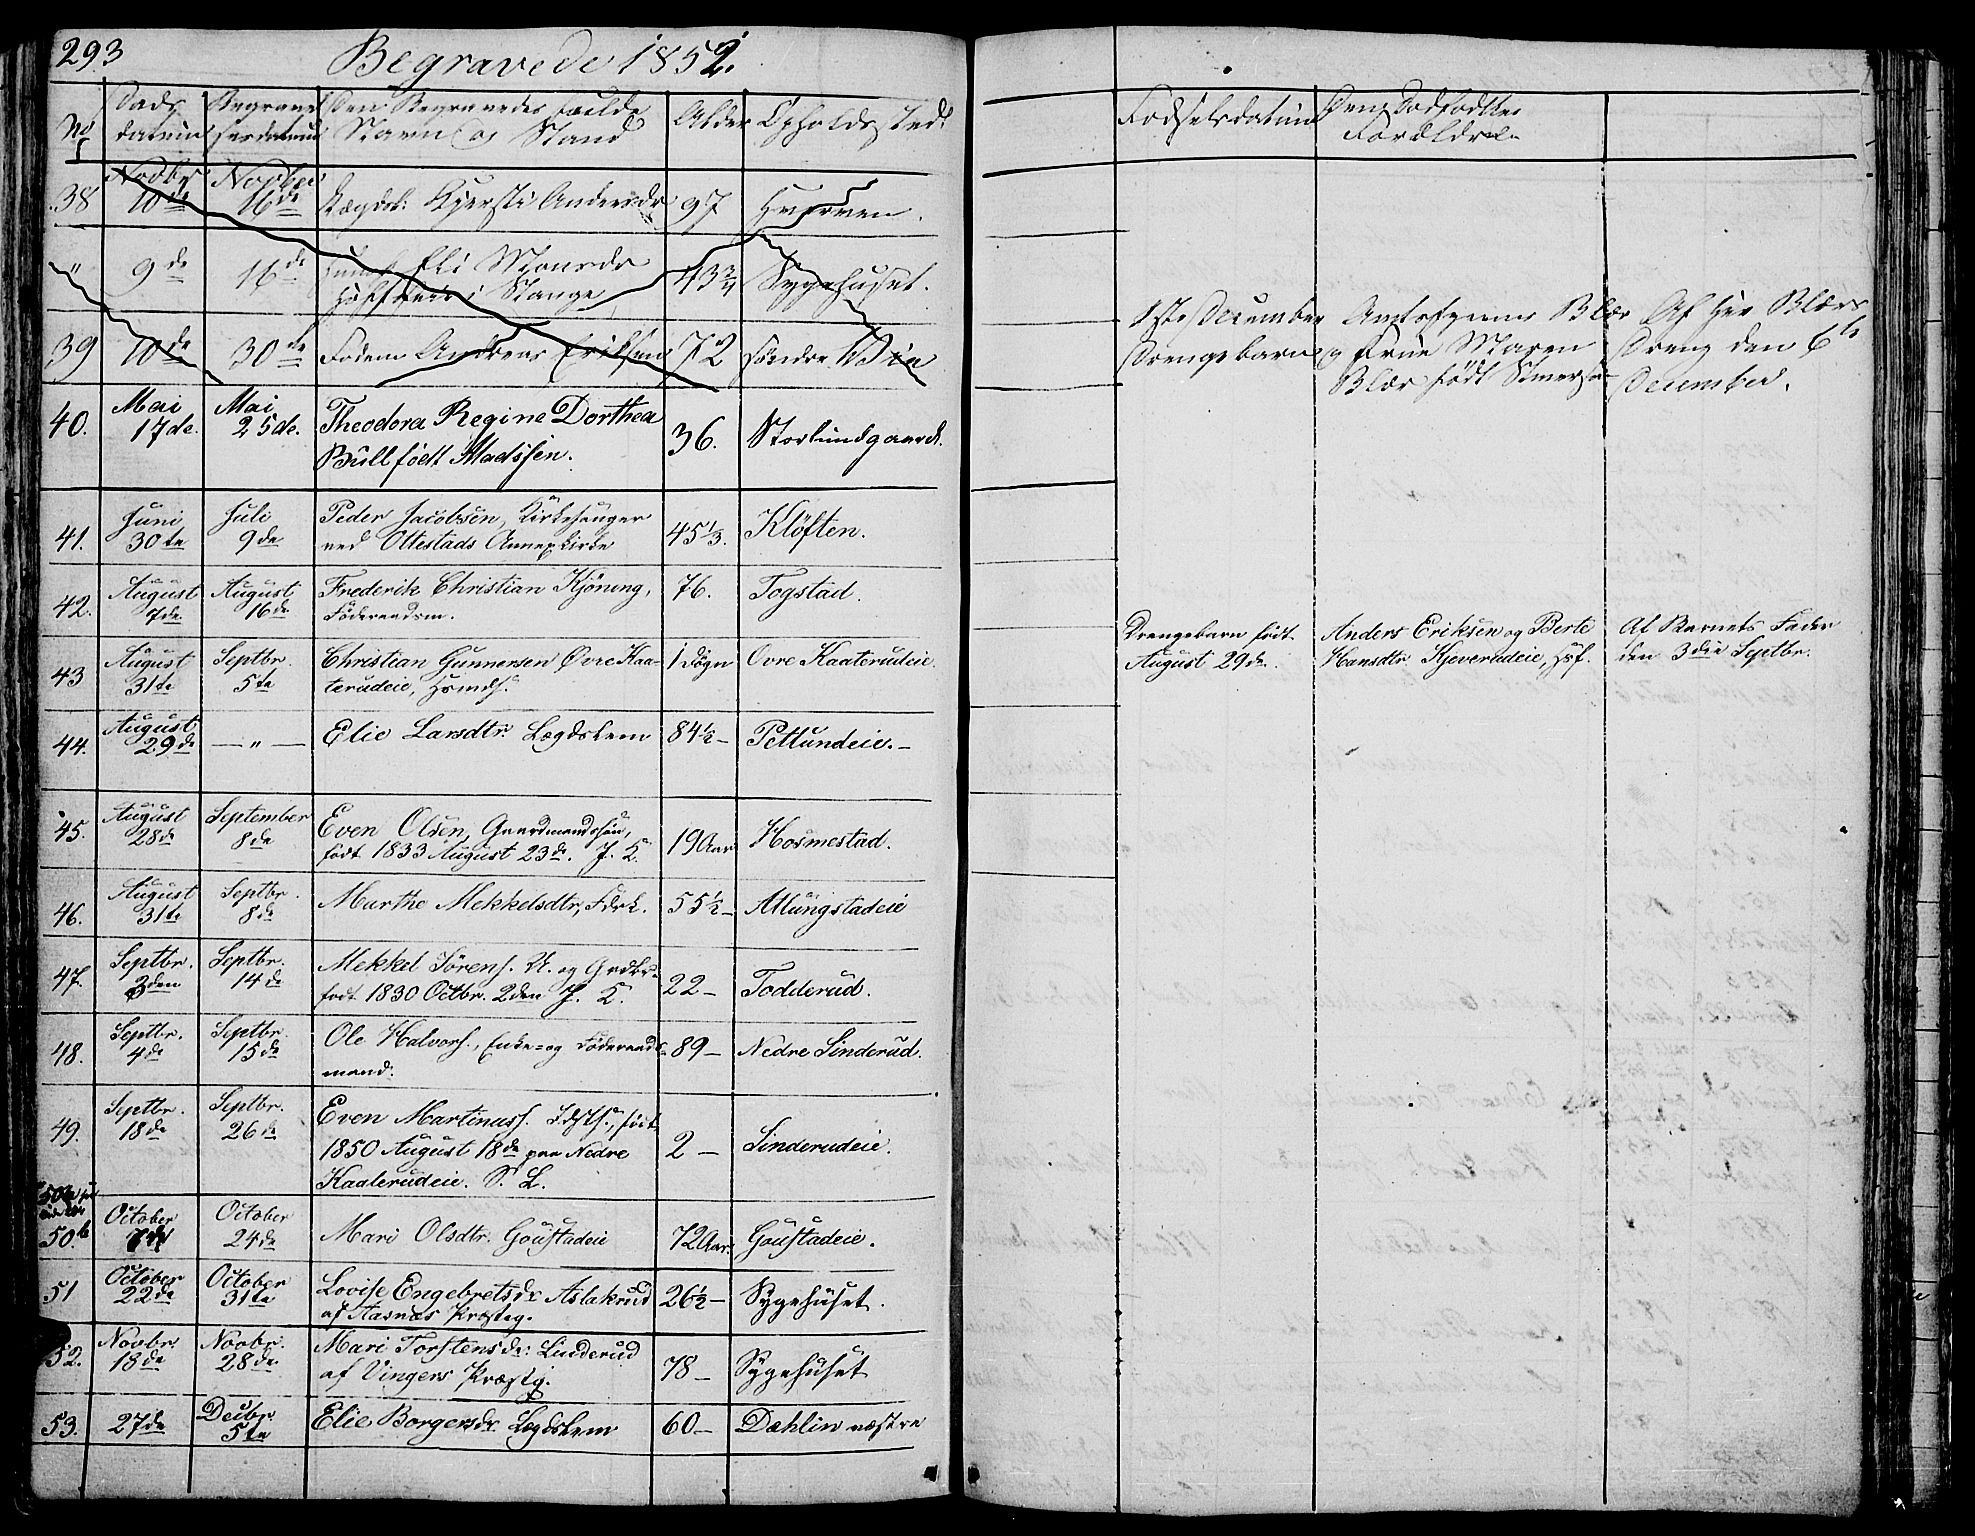 293
Begravede 1852.
No Døds datum Begravelsesdatum Den Begravedes fulde Navn og Stand Alder Opholdssted.
38 Novbr 10de Novber 16de Lægdsl: Kjersti Andersdr 97
" 9de 16de Eli Monsdr 43 3/4 Sygehuset.
i Stange
39 10de 30de Födem Andreas Eriksen 72 søndre Win
40. Mai 17de. Mai 25de. Theodora Regine Dorthea
Bull født Madssen. 36. Storlundgaard.
41. Juni 30te Juli 9de Peder Jacobsen, Kirkesanger
ved Ottestads Annexkirke 45 1/3. Kløften.
42. August 7de. August 16de Frederik Christian Kjöning,
Föderaadsm. 76. Togstad.
43 August 31te Septbr. 5te Christian Gunnersen Øvre Kaa-
terudeie, Huusmds. 1 Døgn Ovre Kaaterudeie
44. August 29de — " — Elie Larsdtr. Lægdslem 84 1/2 – Pettundeie. –
45. August 28de September 8de Even Olsen, Gaardmandssøn,
født 1833 August 23de. J. K. 19 Aar Hosmestad.
46. August 31te Septbr. 8de Marthe Mekkelsdtr, Fdrk. 55 1/2 – Atlungstadeie
47. Septbr. 3den Septbr. 14de Mekkel Sörens. U. og Grdbr.
født 1830 Octbr. 2den J. K. 22 – Todderud.
48. Septbr. 4de Septbr. 15de Ole Halvors., Enke= og Föderaads-
mand. 89 – Nedre Sinderud.
49. Septbr. 18de Septbr. 26de Even Martinuss. født
1850 August 18de paa Nedre
Kaaterudeie. S. L. 2 – Sinderudeie.
50b October 7de October 24de Mari Olsdtr. Goustadeie 72 Aar. Goustadeie.
51 October 22de October 31te Lovise Engebretsdr Aslakrud
af Aasnæs Præstg. 26 1/2 – Sygehuset.
52. Novbr. 18de Novbr. 28de. Mari Torstensdr: Linderud
af Vingers Præstg. 78 – Sygehuset
53. 27de Decbr. 5te Elie Borgersdr. Lægdslem 60 – Dæhlin næstre
Fødselsdatum Den Dødfødtes
Forældre
1ste December Amtsfgeren Blær Af Hr Blærs
Drengebarn og Frue Maren Dreng den 6te
Blær født December.
Drengebarn født Anders Eriksen og Berte Af Barnets Fader
August 29de. Hansdtr Kjeverudeie, Huf. den 3die Septbr.